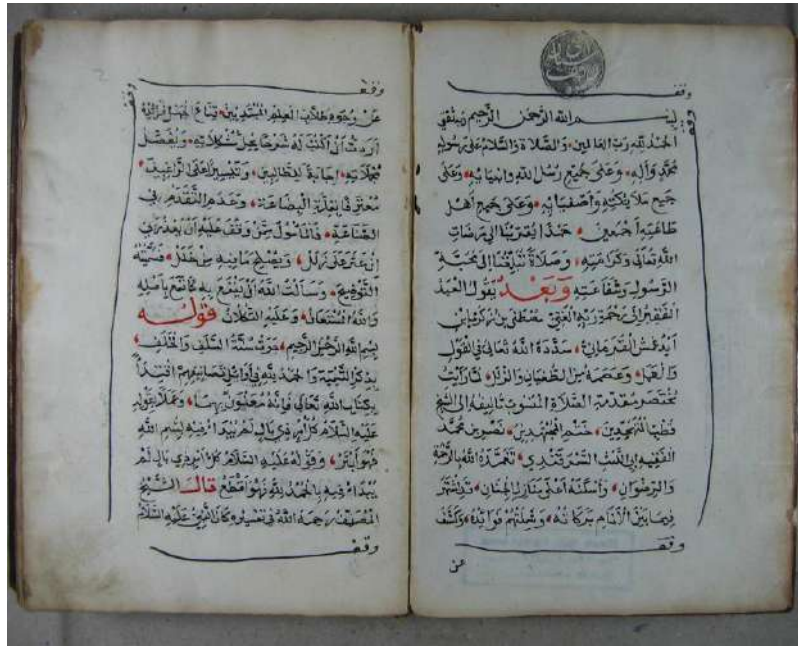 وقف
بسم الله الرحمن الرحيم وبه ثقتي
الحمد لله رب العالمين والصلاة والسلام على رسوله
محمد وآله وعلى جميع رسل الله وانبيائه وعلى
جميع ملائكته وأصفيائه وعلى جميع أهل
طاعته أجمعين حمدا يقربنا الى مرضات
الله تعالى وكرامته وصلاة تبلغنا الى محبة
الرسول وشفاعته وبعد يقول العبد
الفقير الى رحمة ربه الغني مصطفى بن زكريا بن
آيدغمش القرماني سدده الله تعالى في القول
والعمل وعصمه من الطغيان والزلل لما رأيت
مختصر مقدمة الصلاة المنسوب تأليفه الى الشيخ
قطب المتهجدين ختم المجتهدين نصر بن محمد
الفقيه ابى الليث السمرقندي تغمده الله بالرحمة
والرضوان وأسكنه أعلى منازل الجنان قد اشتهر
فيما بين الأنام بركاته وشملتهم فوائده وكشف
وقف
عن
وقف
عن وجوه طلاب العلم المبتدئين قناع الجهل فرائده
أردت أن أكتب له شرحا يحل مشكلاته ويفصل
مجملاته اجابة للطالبين وتيسيرا على الراغبين
معترفا بقلة البضاعة وعدم التقدم في
الصناعة فالمأمول ممن وقف عليه أن يعذرني
إن عثر على زلل ويصلح مافيه من خلل فسميته
التوضيح وسألت الله أن ينفع به كما نفع بأصله
والله المستعان وعليه التكلان قوله
بسم الله الرحمن الرحيم جرت سنة السلف والخلف
بذكر التسمية والحمد لله في أوائل تصانيفهم اقتداء
بكتاب الله تعالى فإنه معنون بهما وعملا بقوله
عليه السلام كل أمر ذي بال لم يبدأ فيه بسم الله
فهو أبتر وقوله عليه السلام كل أمر ذي بال لم
يبداء فيه بالحمد لله فهو أقطع قال الشيخ
المصنف رحمه الله في تفسيره وكان النبي عليه السلام
وقف